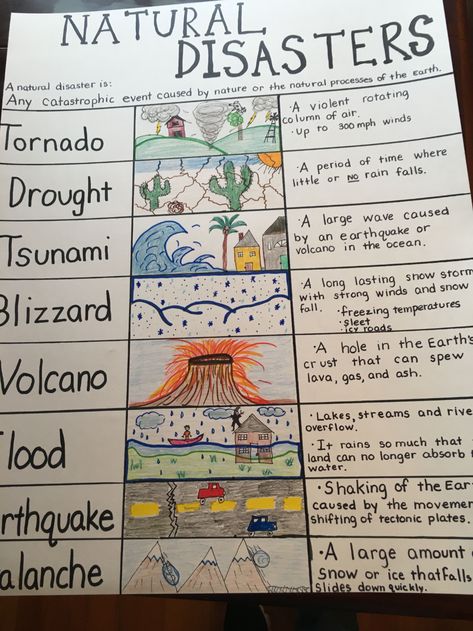 NATURAL
DISASTERS
A natural disaster is:
Any catastrophic event caused by nature or the natural processes of the Earth.
Tornado
· A violent rotating
column of air.
· Up to 300 mph winds
Drought
· A period of time where
little or no rain falls.
Tsunami
· A large wave caused
by an earthquake or
volcano in the ocean.
Blizzard
· A long lasting snow storm
with strong winds and snow
fall.
· freezing temperatures
· sleet
· icy roads
Volcano
· A hole in the Earth's
crust that can spew
lava, gas, and ash.
lood
· Lakes, streams and rive
overflow.
· It rains so much that
land can no longer absorb t
water.
rthquake
· Shaking of the Ear
caused by the movemen
shifting of tectonic plates.
alanche
· A large amount o
snow or ice that falls
slides down quickly.